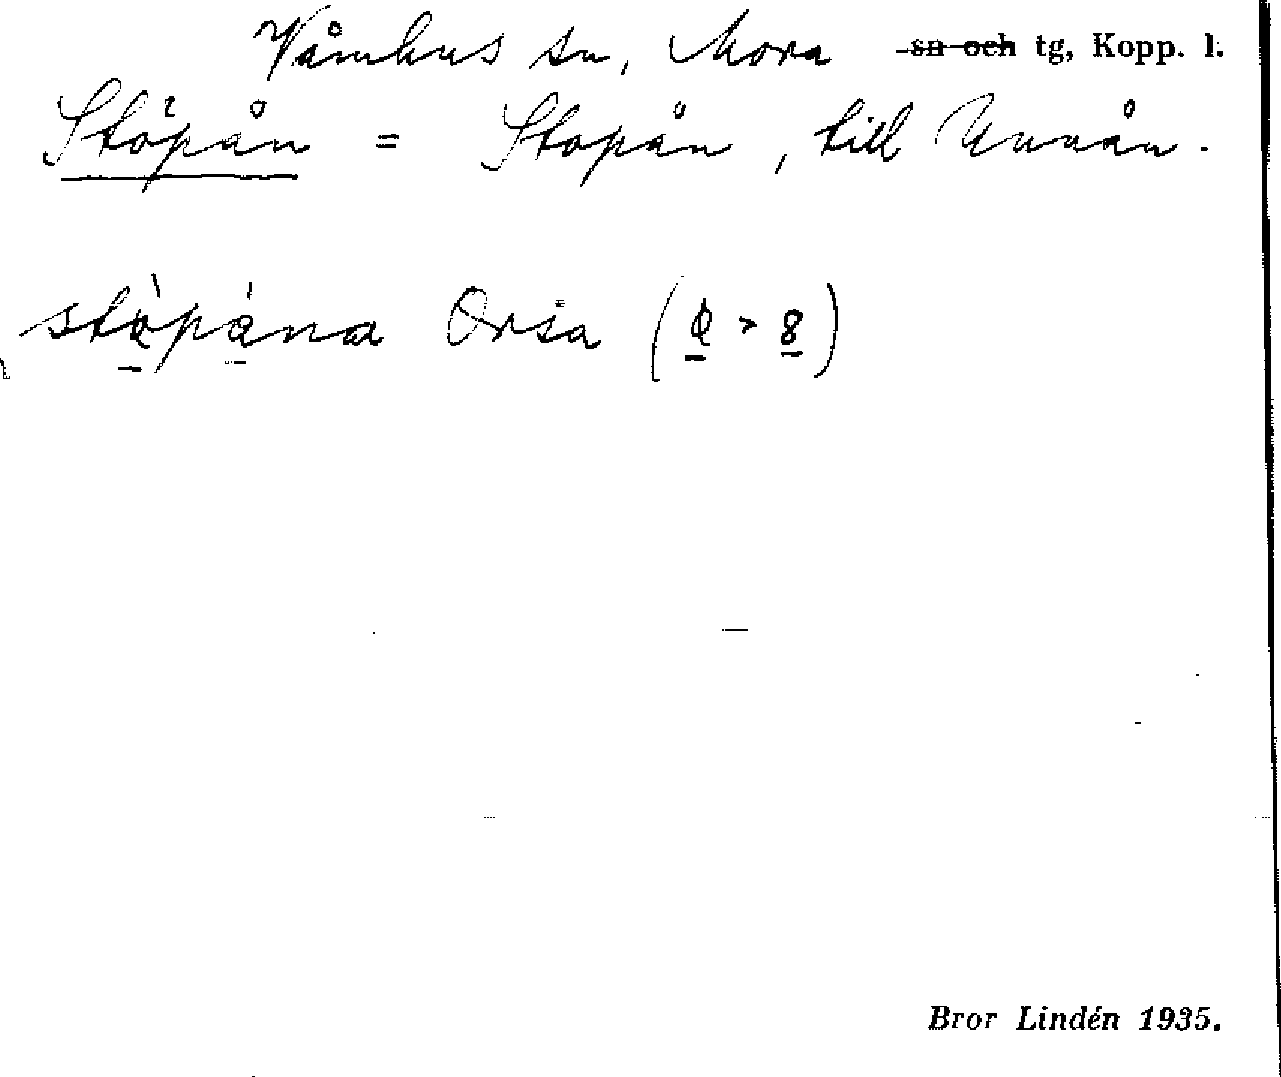 Våmhus sn, Mora sn och tg, Kopp. l.
Stöpån = Stopån, till Unnån.
stöpåna Orsa
Bror Lindén 1935.